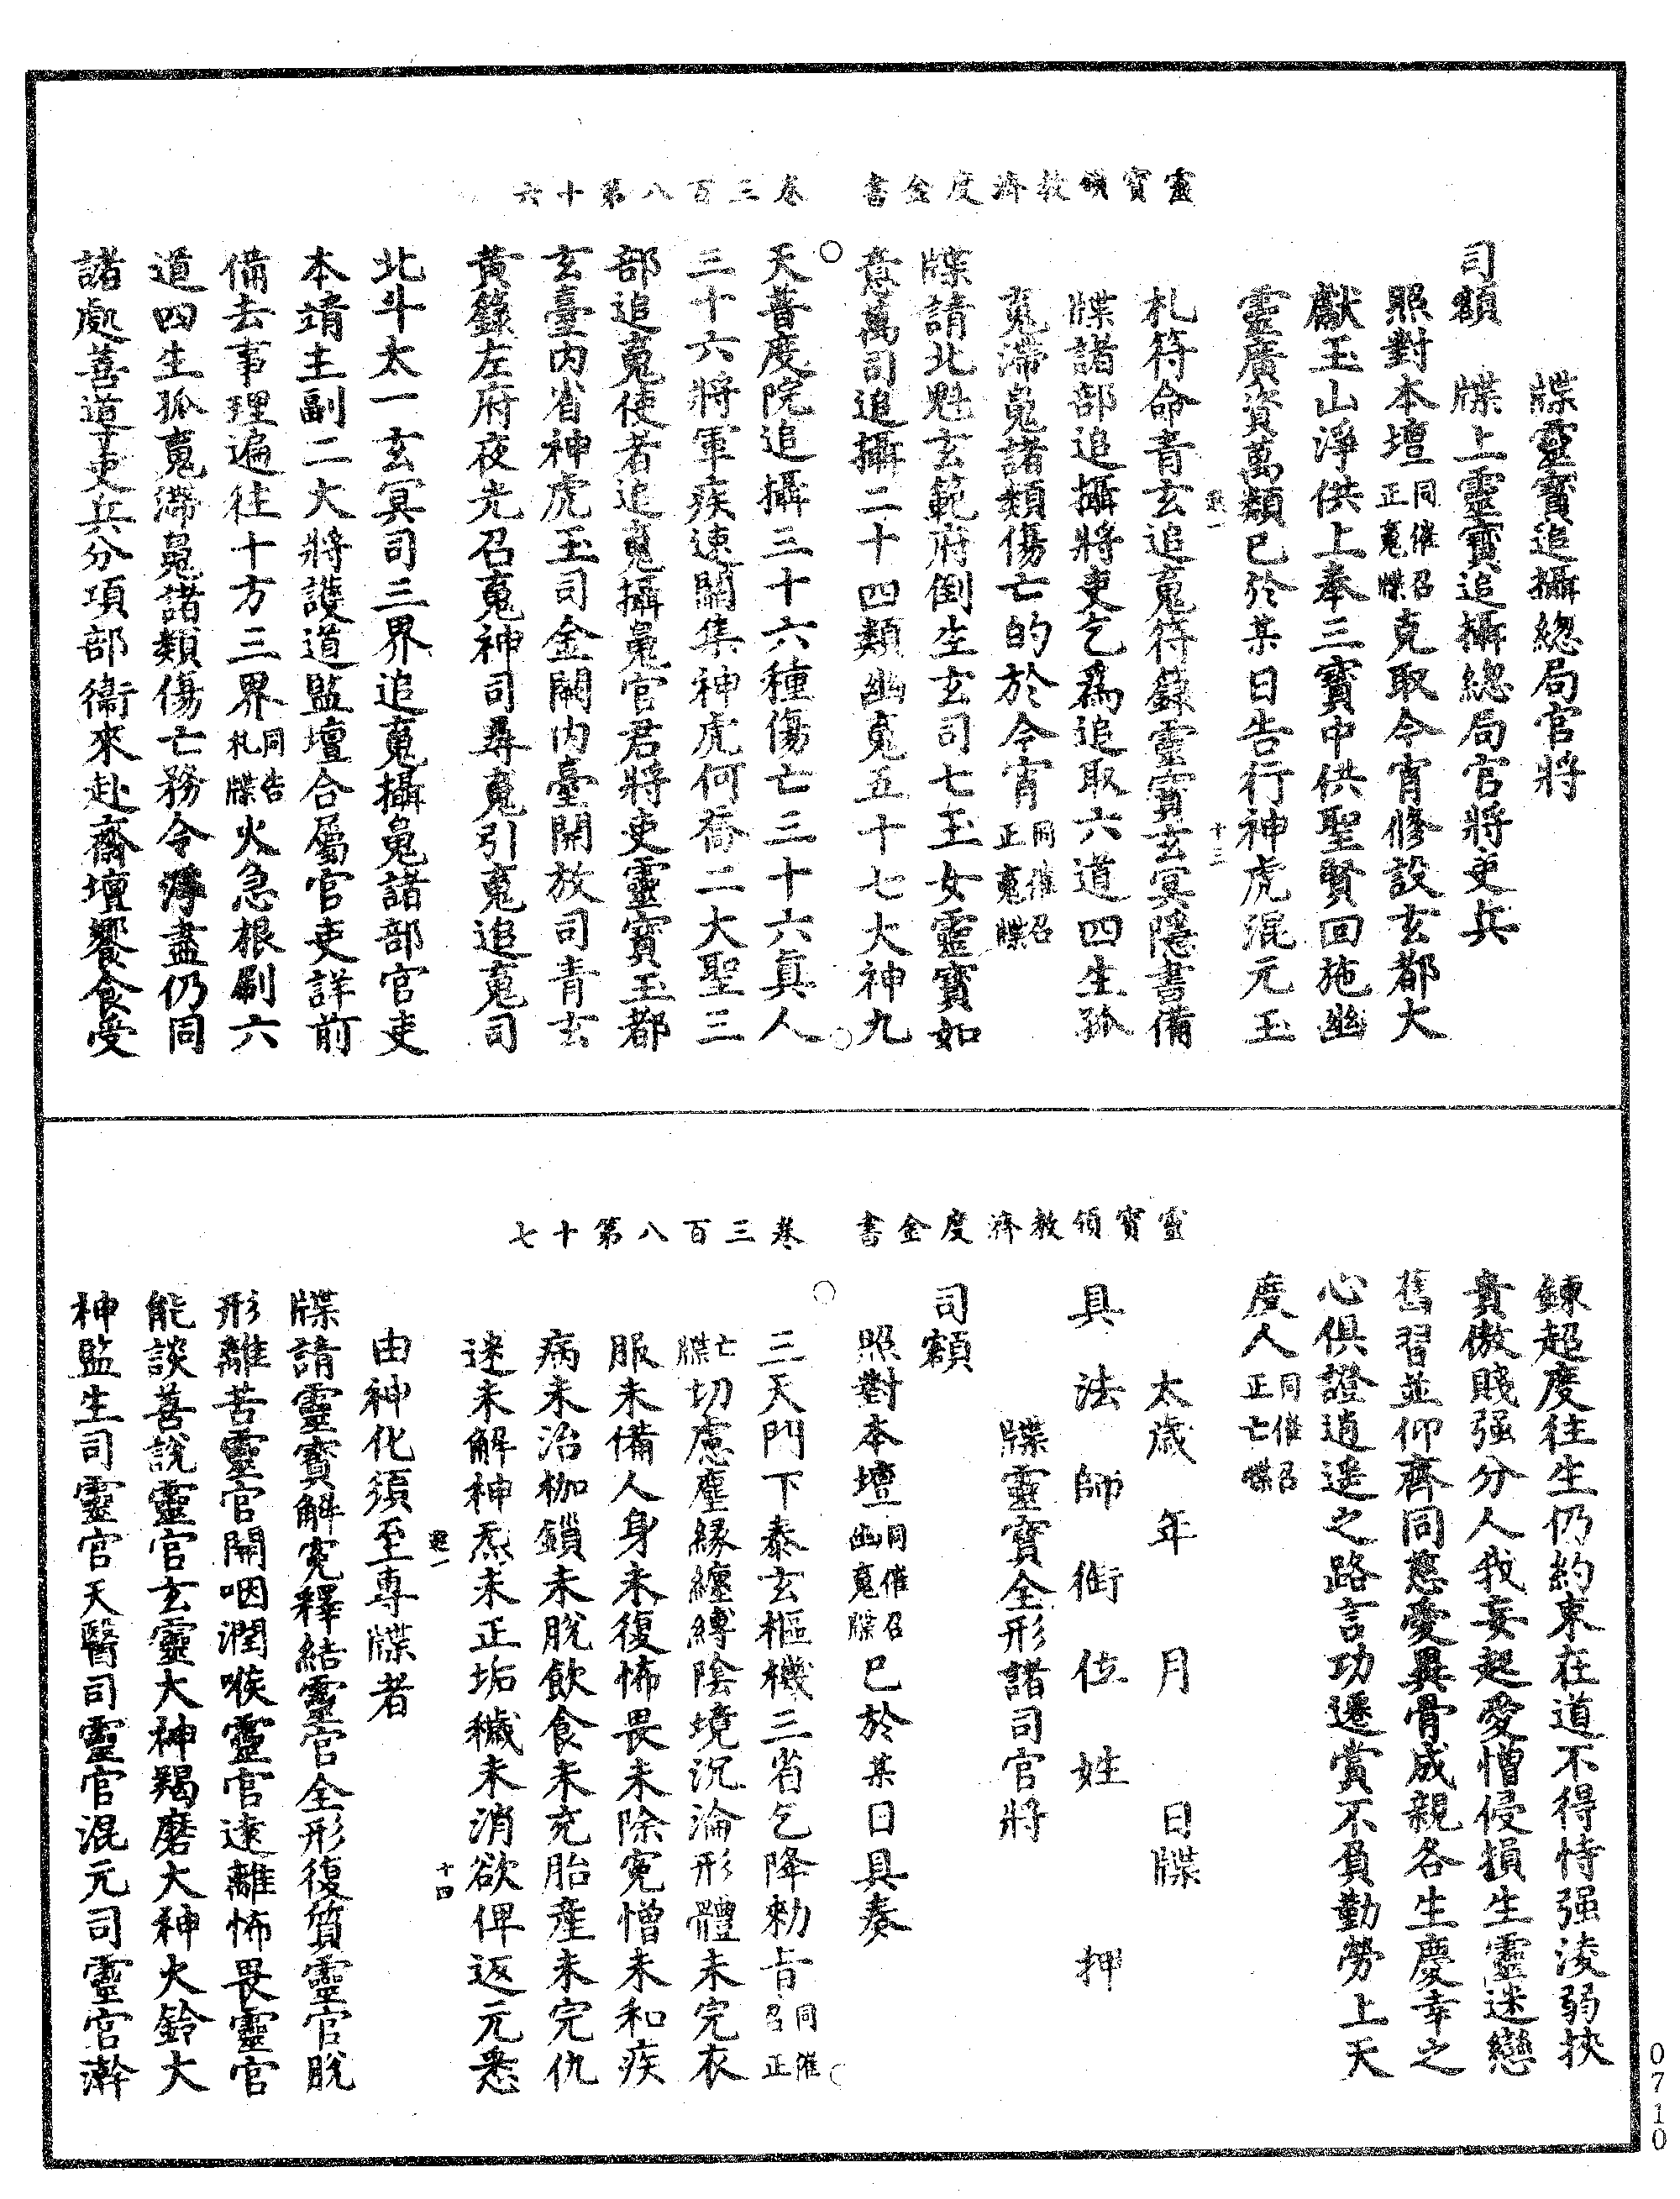 靈寶領教濟度金書　卷三百八第十六
牒靈寶追攝總局官將
司額　牒上靈寶追攝總局官將吏兵
照對本壇同催召正䰟牒克取今宵修設玄都大
獻玉山淨供上奉三寶中供聖賢回施幽
靈廣資萬類已於某日告行神虎混元玉
彂一　十三
札符命青玄追䰟符籙靈寶玄冥隱書備
牒諸部追攝將吏乞為追取六道四生孤
䰟滯魄諸類傷亡的於今宵同催召正䰟牒
牒請北魁玄範府倒生玄司七玉女靈寶如
意萬司追攝二十四類幽䰟五十七大神九
天普度院追攝三十六種傷亡三十六真人
三十六將軍疾速關集神虎何喬二大聖三
部追䰟使者追䰟攝魄官君將吏靈寶玉都
玄臺內省神虎玉司金闕內臺開放司青玄
黃籙左府夜光召䰟神司尋䰟引䰟追䰟司
北斗太一玄冥司三界追䰟攝魄諸部官吏
本靖主副二大將護道監壇合屬官吏詳前
備去事理遍往十方三界同告札牒火急根刷六
道四生孤䰟滯魄諸類傷亡務令淨盡仍同
諸處善道吏兵分項部衛來赴齋壇饗食受
靈寶領教濟度金書　卷三百八第十七
鍊超度往生仍約束在道不得恃强淩弱挾
貴傲賤强分人我妄起愛憎侵損生靈迷戀
舊習並仰齊同慈愛異骨成親各生慶幸之
心俱證逍遙之路言功遷賞不負勤勞上天
度人同催召正亡牒
太歲　年　月　日牒
具法師銜位姓　押
牒靈寶全形諸司官將
司額
照對本壇同催召幽䰟牒已於某日具奏
三天門下泰玄樞機三省乞降勑旨同催召正
亡牒切慮塵緣纏縛陰境沉淪形體未完衣
服未備人身未復怖畏未除冤憎未和疾
病未治枷鎖未脫飲食未充胎產未完仇
迷未解神炁未正垢穢未消欲俾返元悉
彂一　十四
由神化須至專牒者
牒請靈寶解冤釋結靈官全形復質靈官脫
形離苦靈官開咽潤喉靈官遠離怖畏靈官
能談善說靈官玄靈大神羯磨大神火鈴大
神監生司靈官天醫司靈官混元司靈官澣
0710